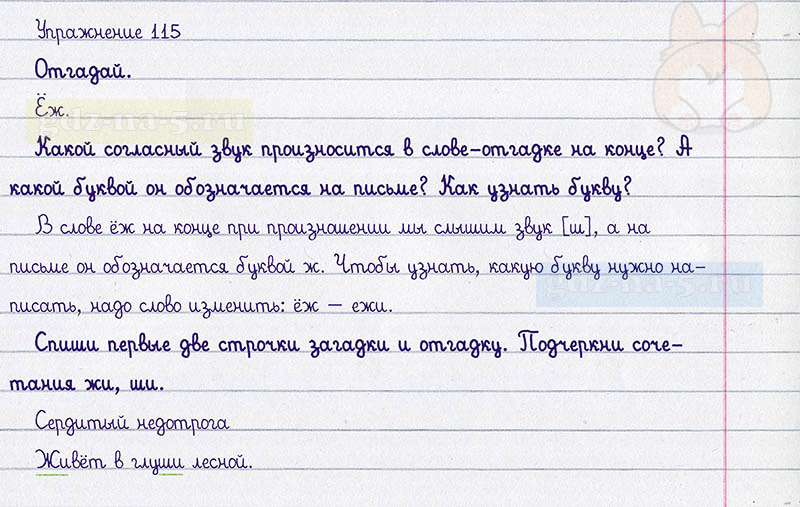 Упражнение 115
Отгадай.
Ёж.
gdz-na-5.ru
Какой согласный звук произносится в слове-отгадке на конце? А
какой буквой он обозначается на письме? Как узнать букву?
В слове ёж на конце при произношении мы слышим звук [ш], а на
письме он обозначается буквой ж. Чтобы узнать, какую букву нужно на-
писать, надо слово изменить: ёж – ежи.
gdz-na-5.ru
Спиши первые две строчки загадки и отгадку. Подчеркни соче-
тания жи, ши.
Сердитый недотрога
Живёт в глуши лесной.